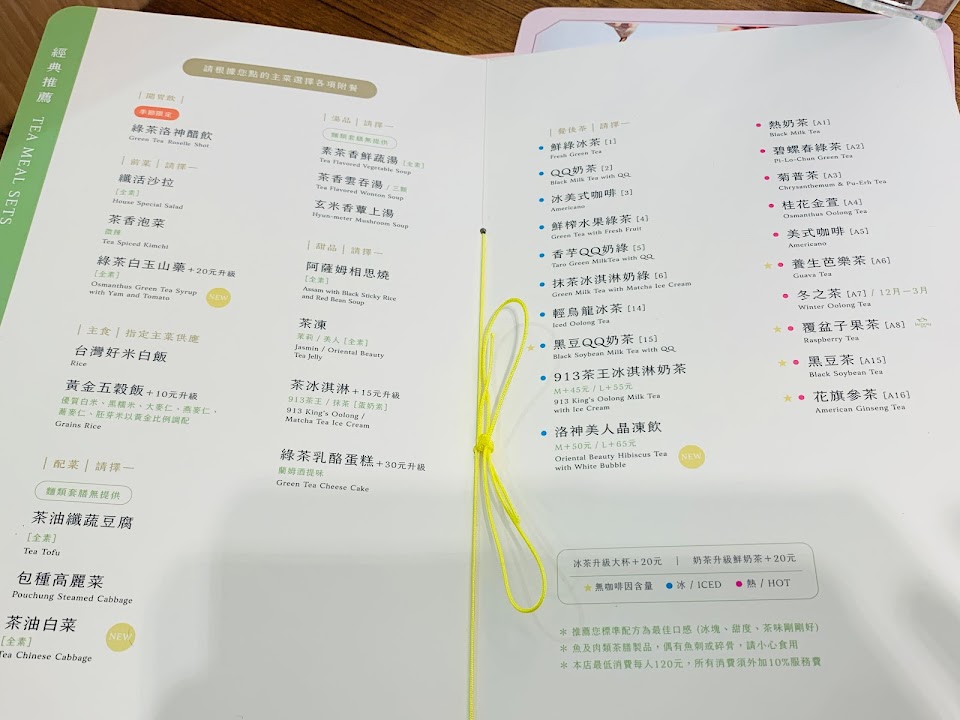 經典推薦 TEA MEAL SETS
請根據您點的主菜選擇各項附餐
｜開胃飲｜
季節限定
綠茶洛神醋飲
Green Tea Roselle Shot
｜前菜｜請擇一
纖活沙拉
[全素]
House Special Salad
茶香泡菜
微辣
Tea Spiced Kimchi
綠茶白玉山藥+20元升級
[全素]
Osmanthus Green Tea Syrup
with Yam and Tomato
NEW
｜主食｜指定主菜供應
台灣好米白飯
Rice
黃金五穀飯+10元升級
優質白米、黑糯米、大麥仁、燕麥仁、
蕎麥仁、胚芽米以黃金比例調配
Grains Rice
｜配菜｜請擇一
麵類套膳無提供
茶油纖蔬豆腐
[全素]
Tea Tofu
包種高麗菜
Pouchung Steamed Cabbage
茶油白菜
[全素]
Tea Chinese Cabbage
NEW
｜湯品｜請擇一
麵類套膳無提供
素茶香鮮蔬湯 [全素]
Tea Flavored Vegetable Soup
茶香雲吞湯 / 三顆
Tea Flavored Wonton Soup
玄米香蕈上湯
Hyun-meter Mushroom Soup
｜甜品｜請擇一
阿薩姆相思燒
[全素]
Assam with Black Sticky Rice
and Red Bean Soup
茶凍
茉莉 / 美人 [全素]
Jasmin / Oriental Beauty
Tea Jelly
茶冰淇淋+15元升級
913茶王 / 抹茶 [蛋奶素]
913 King's Oolong /
Matcha Tea Ice Cream
綠茶乳酪蛋糕+30元升級
蘭姆酒提味
Green Tea Cheese Cake
｜餐後茶｜請擇一
鮮綠冰茶 [1]
Fresh Green Tea
QQ奶茶 [2]
Black Milk Tea with QQ
冰美式咖啡 [3]
Americano
鮮榨水果綠茶 [4]
Green Tea with Fresh Fruit
香芋QQ奶綠 [5]
Taro Green MilkTea with QQ
抹茶冰淇淋奶綠 [6]
Green Milk Tea with Matcha Ice Cream
輕烏龍冰茶 [14]
Iced Oolong Tea
黑豆QQ奶茶 [15]
Black Soybean Milk Tea with QQ
913茶王冰淇淋奶茶
M+45元 / L+55元
913 King's Oolong Milk Tea
with Ice Cream
洛神美人晶凍飲
M+50元 / L+65元
Oriental Beauty Hibiscus Tea
with White Bubble
NEW
熱奶茶 [A1]
Black Milk Tea
碧螺春綠茶 [A2]
Pi-Lo-Chun Green Tea
菊普茶 [A3]
Chrysanthemum & Pu-Erh Tea
桂花金萱 [A4]
Osmanthus Oolong Tea
美式咖啡 [A5]
Americano
養生芭樂茶 [A6]
Guava Tea
冬之茶 [A7] / 12月－3月
Winter Oolong Tea
覆盆子果茶 [A8]
Raspberry Tea
黑豆茶 [A15]
Black Soybean Tea
花旗參茶 [A16]
American Ginseng Tea
冰茶升級大杯+20元 ｜ 奶茶升級鮮奶茶+20元
★無咖啡因含量 ●冰 / ICED ●熱 / HOT
＊推薦您標準配方為最佳口感 (冰塊、甜度、茶味剛剛好)
＊魚及肉類茶膳製品，偶有魚刺或碎骨，請小心食用
＊本店最低消費每人120元，所有消費須外加10%服務費